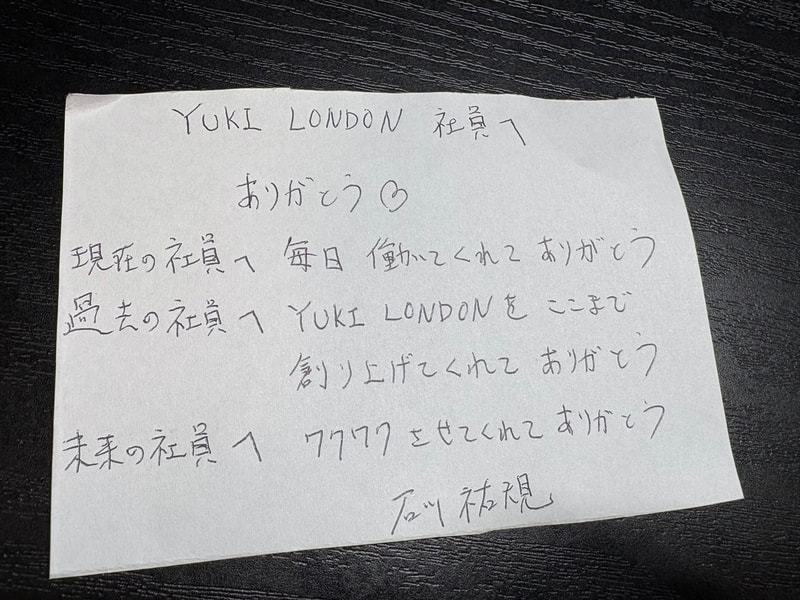 YUKI LONDON 社員へ
ありがとう♡
現在の社員へ 毎日 働いてくれて ありがとう
過去の社員へ YUKI LONDONを ここまで
創り上げてくれて ありがとう
未来の社員へ ワクワクさせてくれて ありがとう
石川 祐規